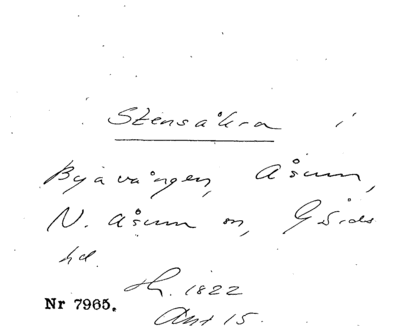 Stensåkra i
Byavången, Åsum,
N. Åsum sn, Gärds
hd.
Sk. 1822
Akt 15.
Nr 7965.